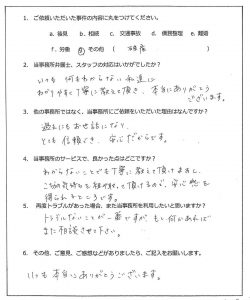 1. ご依頼いただいた事件の内容に丸をつけてください。
a. 後見 b. 相続 c. 交通事故 d. 債務整理 e. 離婚
f. 労働 g その他 ( 破産 )
2. 当事務所弁護士、スタッフの対応はいかがでしたか?
いつも 何もわからない 私達に
わかりやすく丁寧に教えて頂き、本当にありがとう
ございます。
3. 他の事務所ではなく、当事務所にご依頼をいただいた理由はなんですか?
過去にもお世話になり、
とても信頼でき、安心だからです。
4. 当事務所のサービスで、良かった点はどこですか?
わからないことも丁寧に教えて頂けますし、
気持ちを て頂けるので、安心感を
得られるところです。
5. 再度トラブルがあった場合、また当事務所を利用したいと思いますか?
トラブルないことが一番ですが、もし何かあれば
また相談させて下さい。
6. その他、ご意見、ご感想などがありましたら、ご記入をお願いします。
いつも 本当にありがとうございます。